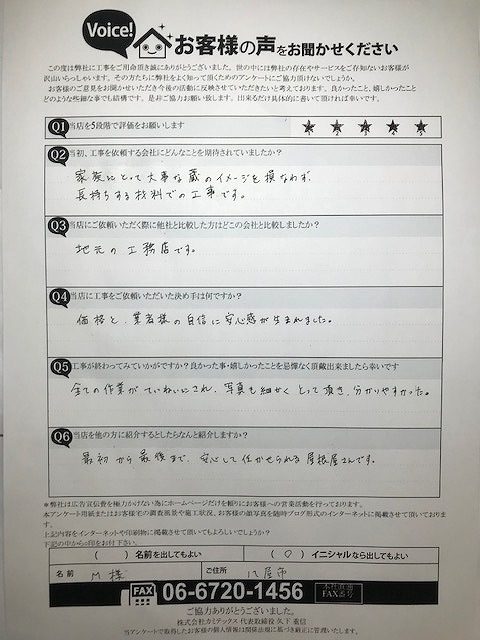 Voice!
お客様の声をお聞かせください
この度は弊社に工事をご用命頂き誠にありがとうございました。世の中には弊社の存在やサービスをご存知ないお客様が
沢山いらっしゃいます。その方たちに弊社をよく知って頂くためのアンケートにご協力頂けないでしょうか。
お客様のご意見をお聞かせいただき今後の活動に反映させていただきたいと考えております。良かったこと、嬉しかったこと
どのような些細な事でも結構です。是非ご協力お願い致します。出来るだけ具体的に書いて頂ければ幸いです。
Q1 当店を5段階で評価をお願いします ★ ★ ★ ★ ★
Q2 当初、工事を依頼する会社にどんなことを期待されていましたか?
家族にとって大事な蔵のイメージを損なわず、
長持ちする材料での工事です。
Q3 当店にご依頼いただく際に他社と比較した方はどこの会社と比較しましたか?
地元の工務店です。
Q4 当店に工事をご依頼いただいた決め手は何ですか?
価格と、業者様の自信に安心感が生まれました。
Q5 工事が終わってみていかがですか?良かった事・嬉しかったことを忌憚なく頂戴出来ましたら幸いです
全ての作業がていねいにされ、写真も細かくとって頂き、分かりやすかった。
Q6 当店を他の方に紹介するとしたらなんと紹介しますか?
最初から最後まで、安心して任かせられる屋根屋さんです。
＊弊社は広告宣伝費を極力かけない為にホームページだけを頼りにお客様への営業活動を行っております。
本アンケート用紙またはお客様宅の調査風景や施工状況、お客様の顔写真を随時ブログ形式のインターネットに掲載させて頂いております。
上記内容をインターネットや印刷物に掲載させて頂いてもよろしいでしょうか?
下記の中から○印をお付下さい。
( ) 名前を出してもよい ( ○ ) イニシャルなら出してもよい
名前 M 様 ご住所
FAX 06-6720-1456 FAX番号
ご協力ありがとうございました。
株式会社カミアックス 代表取締役 久下 重信
当アンケートで取得したお客様の個人情報は関係法規に基づき厳正に管理いたします。